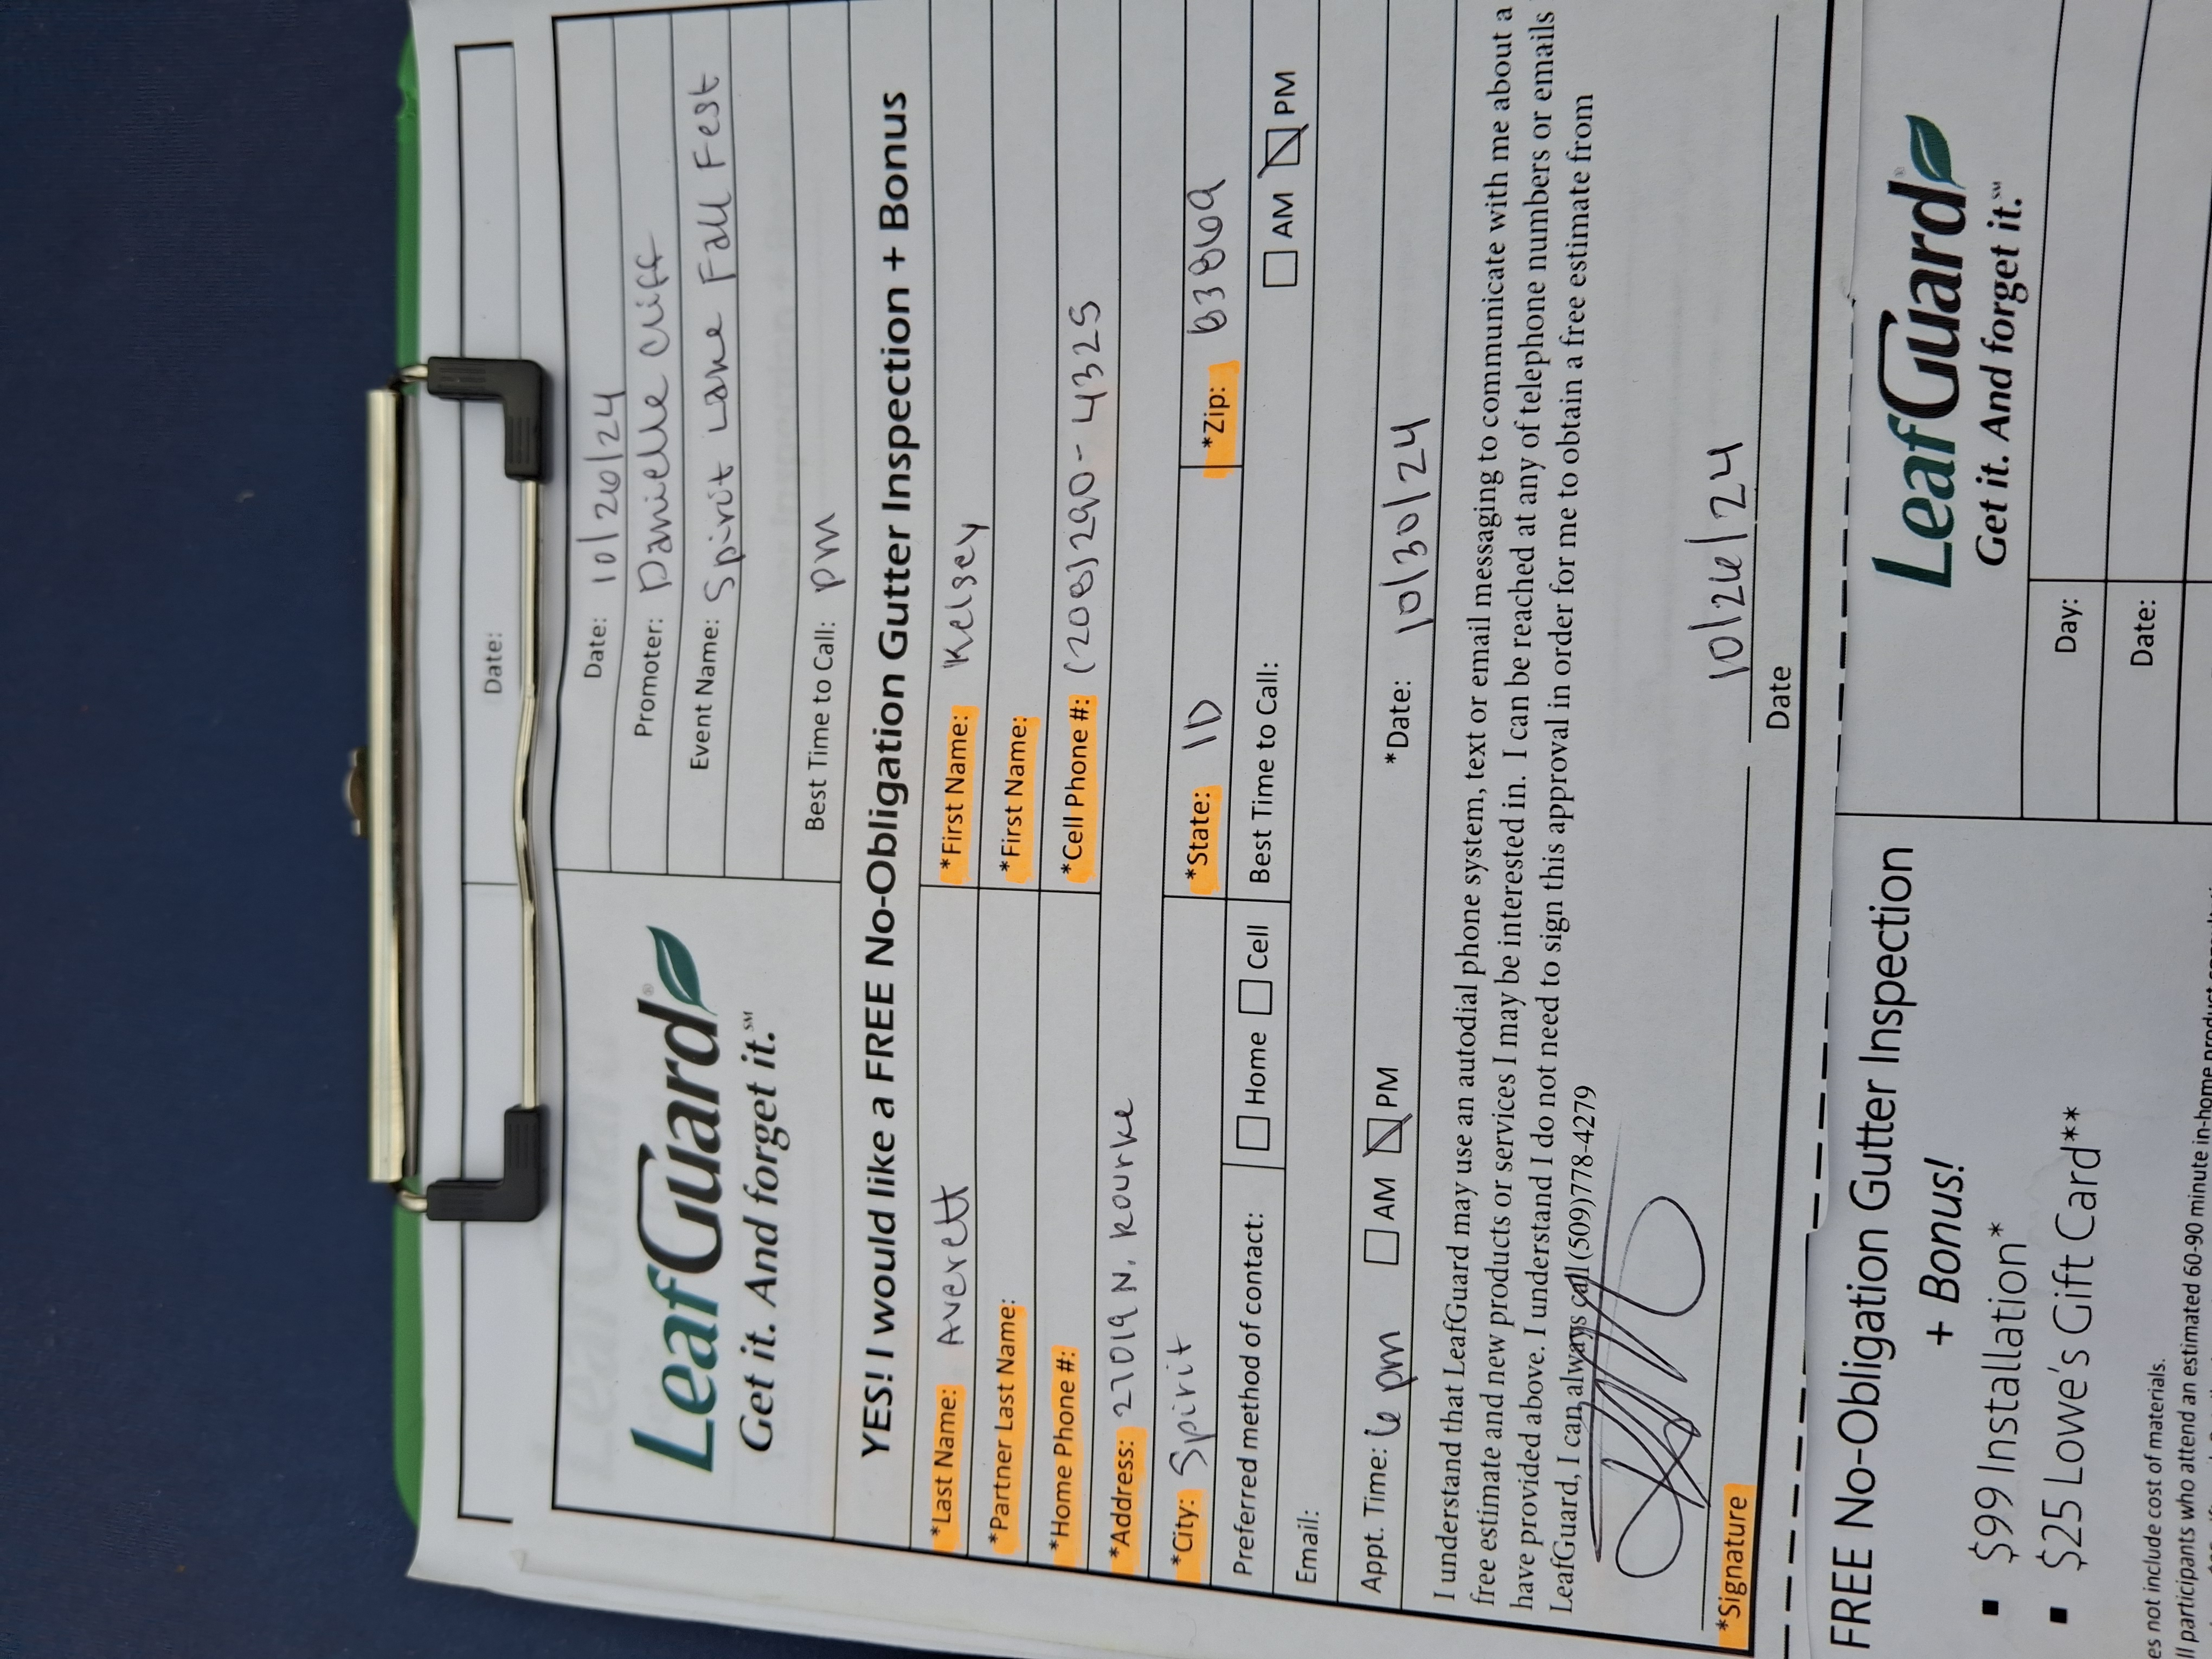 Date:
LeafGuard®
Get it. And forget it.℠
Date: 10/26/24
Promoter: Danielle Cliff
Event Name: Spirit Lake Fall Fest
Best Time to Call: pm
YES! I would like a FREE No-Obligation Gutter Inspection + Bonus
*Last Name: Averett *First Name: Kelsey
*Partner Last Name: *First Name:
*Home Phone #: *Cell Phone #: (208)290-4325
*Address: 27019 N. Rourke
*City: Spirit *State: ID *Zip: 83869
Preferred method of contact: Home Cell Best Time to Call: AM PM
Email:
Appt. Time: 6 pm AM PM *Date: 10/30/24
I understand that LeafGuard may use an autodial phone system, text or email messaging to communicate with me about a
free estimate and new products or services I may be interested in. I can be reached at any of telephone numbers or emails
have provided above. I understand I do not need to sign this approval in order for me to obtain a free estimate from
LeafGuard, I can always call (509)778-4279
10/26/24
*Signature Date
FREE No-Obligation Gutter Inspection
+ Bonus!
▪ $99 Installation*
▪ $25 Lowe's Gift Card**
es not include cost of materials.
ll participants who attend an estimated 60-90 minute in-home product
LeafGuard®
Get it. And forget it.℠
Day:
Date: